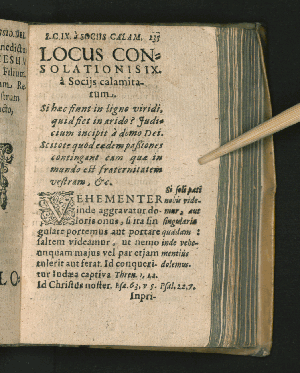 L. C. IX. à SOCIIS CALAM. 135
LOCUS CON-
SOLATIONIS IX.
à Socijs calamita-
tum.
Si hæc fiunt in ligno viridi,
quid fiet in arido? Judi-
cium incipit à domo Dei.
Scitote quòd eædem passiones
contingant eam quæ in
mundo est fraternitatem
vestram, &c.
VEHEMENTER
inde aggravatur do-
loris onus, si ita sin
gulare portemus aut portare
saltem videamur, ut nemo
unquam majus vel par etjam
tulerit aut ferat. Id conqueri-
tur Iudæa captiva Thren. 1, 12.
Id Christus noster. Esa. 63, v 5. Psal. 22, 7.
Inpri-
Si soli pati
nobis vide-
mur, aut
singularia
quædam:
inde vehe-
mentius
dolemus.